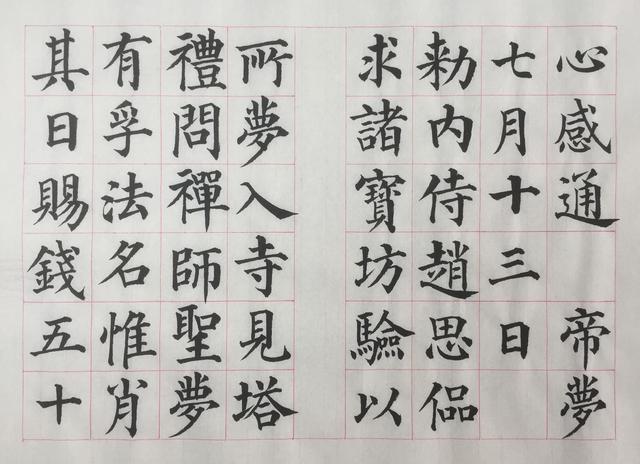 心感通 帝夢
七月十三日
勑内侍趙思侃
求諸寶坊驗以
所夢入寺見塔
禮問禪師聖夢
有孚法名惟肖
其日賜錢五十